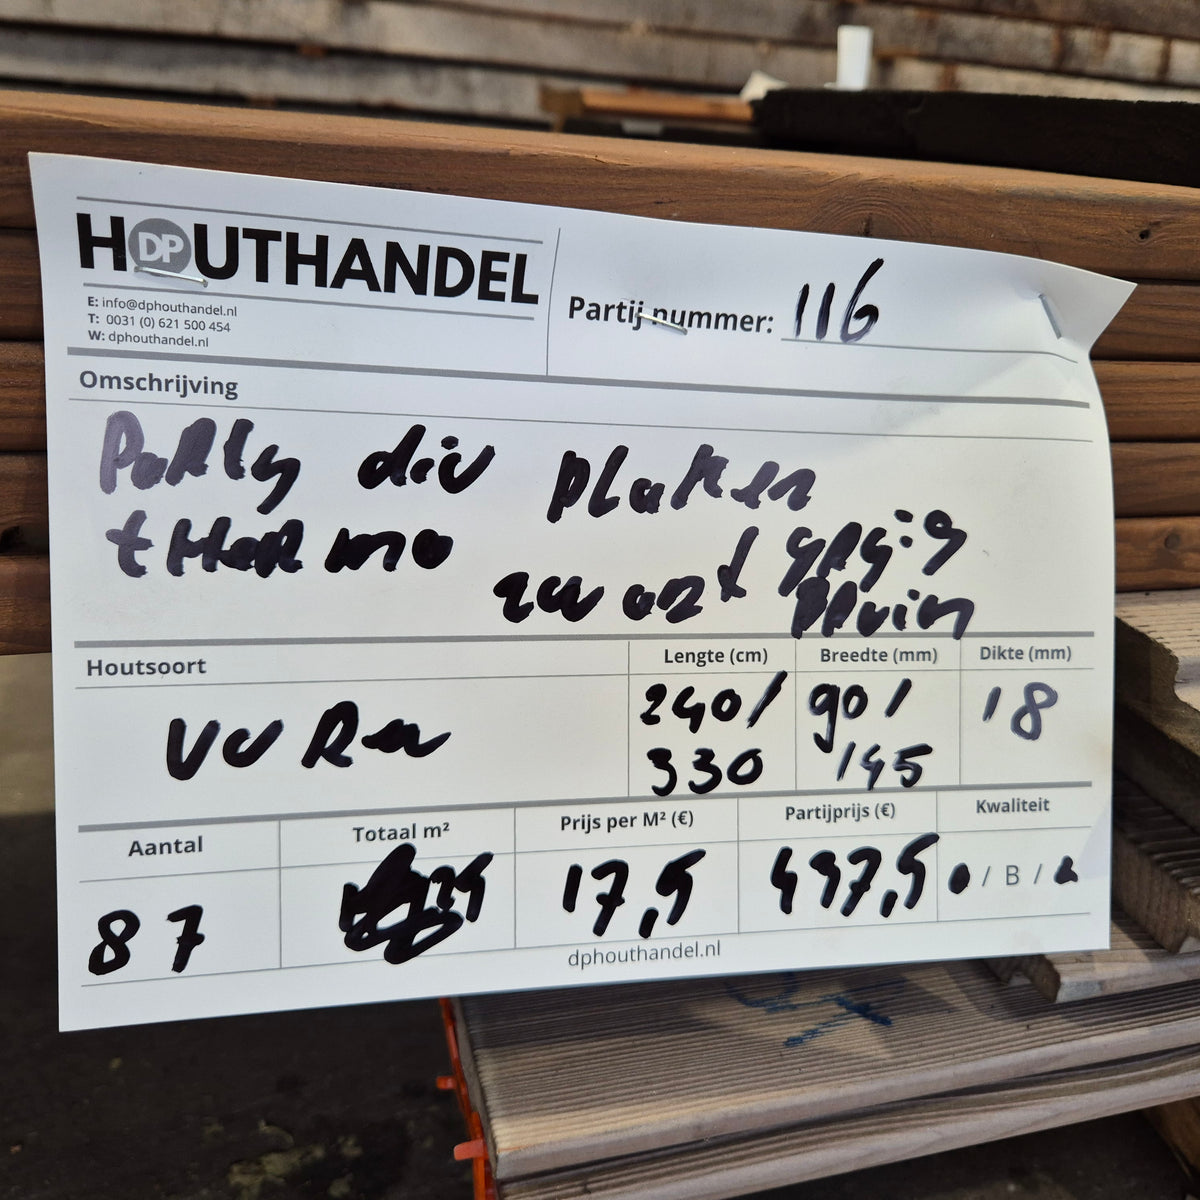 HOUTHANDEL
DP
E: info@dphouthandel.nl
T: 0031 (0) 621 500 454
W: dphouthandel.nl
Partij nummer: 116
Omschrijving
div platen
thermo
zwart
bruin
Houtsoort
Lengte (cm)
Breedte (mm)
Dikte (mm)
Vuren
240/
330
90/
145
18
Aantal
Totaal m²
Prijs per M² (€)
Partijprijs (€)
Kwaliteit
87
17,5
437,5
/ B /
dphouthandel.nl